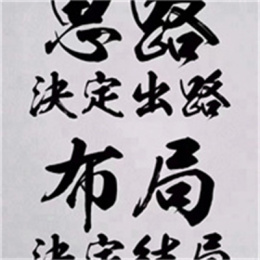 思路
决定出路
布局
决定结局